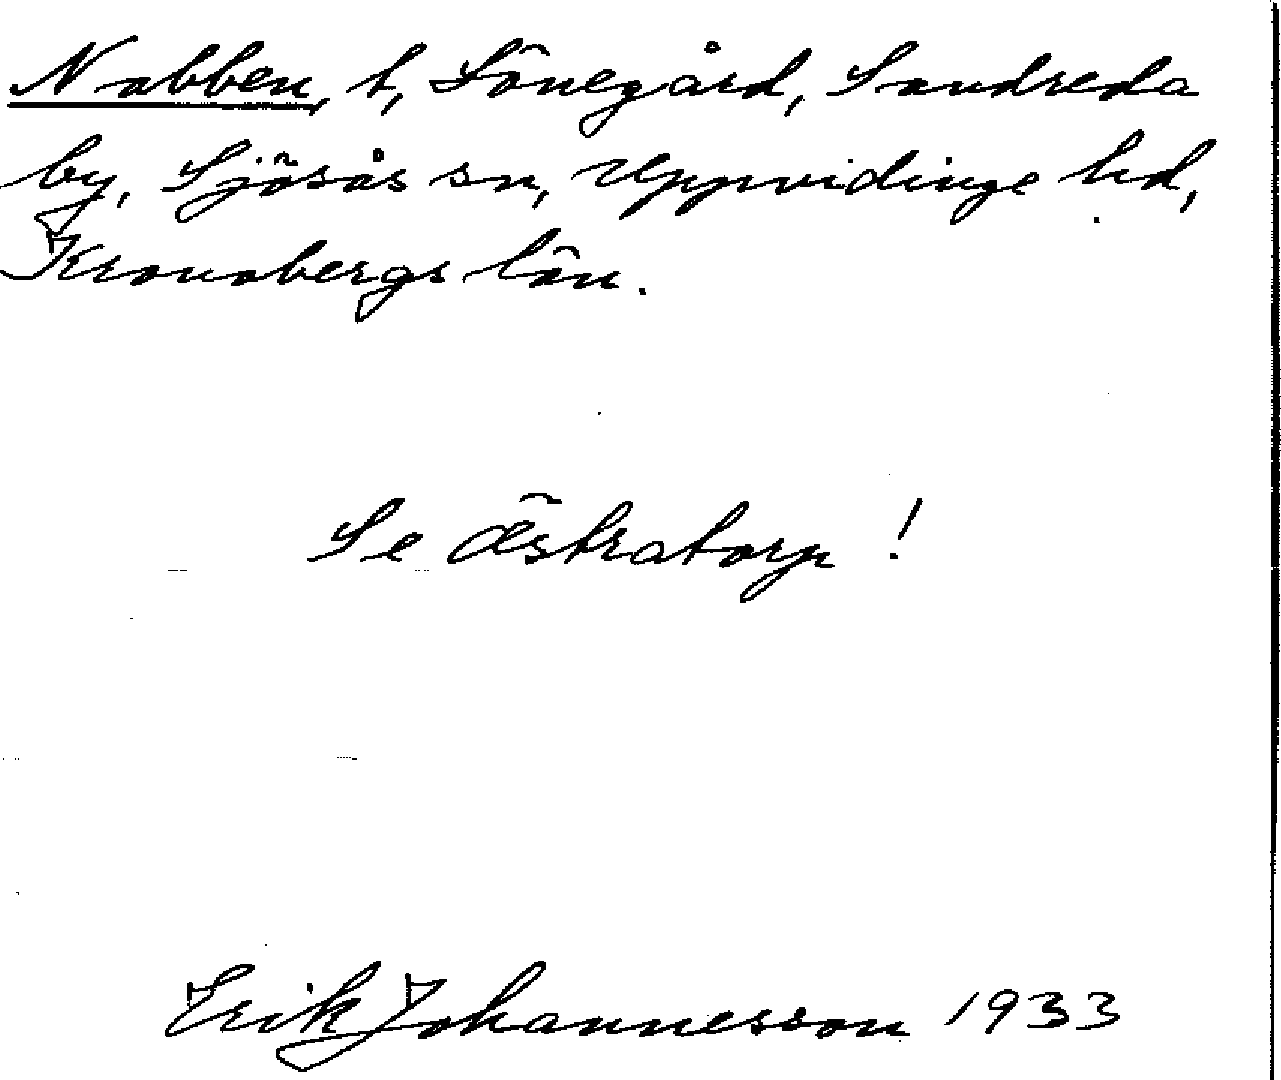 Nabben, t, Sönegård, Sandreda
by, Sjösås sn, Uppvidinge hd,
Kronobergs län.
Se Östratorp!
Erik Johannesson 1933